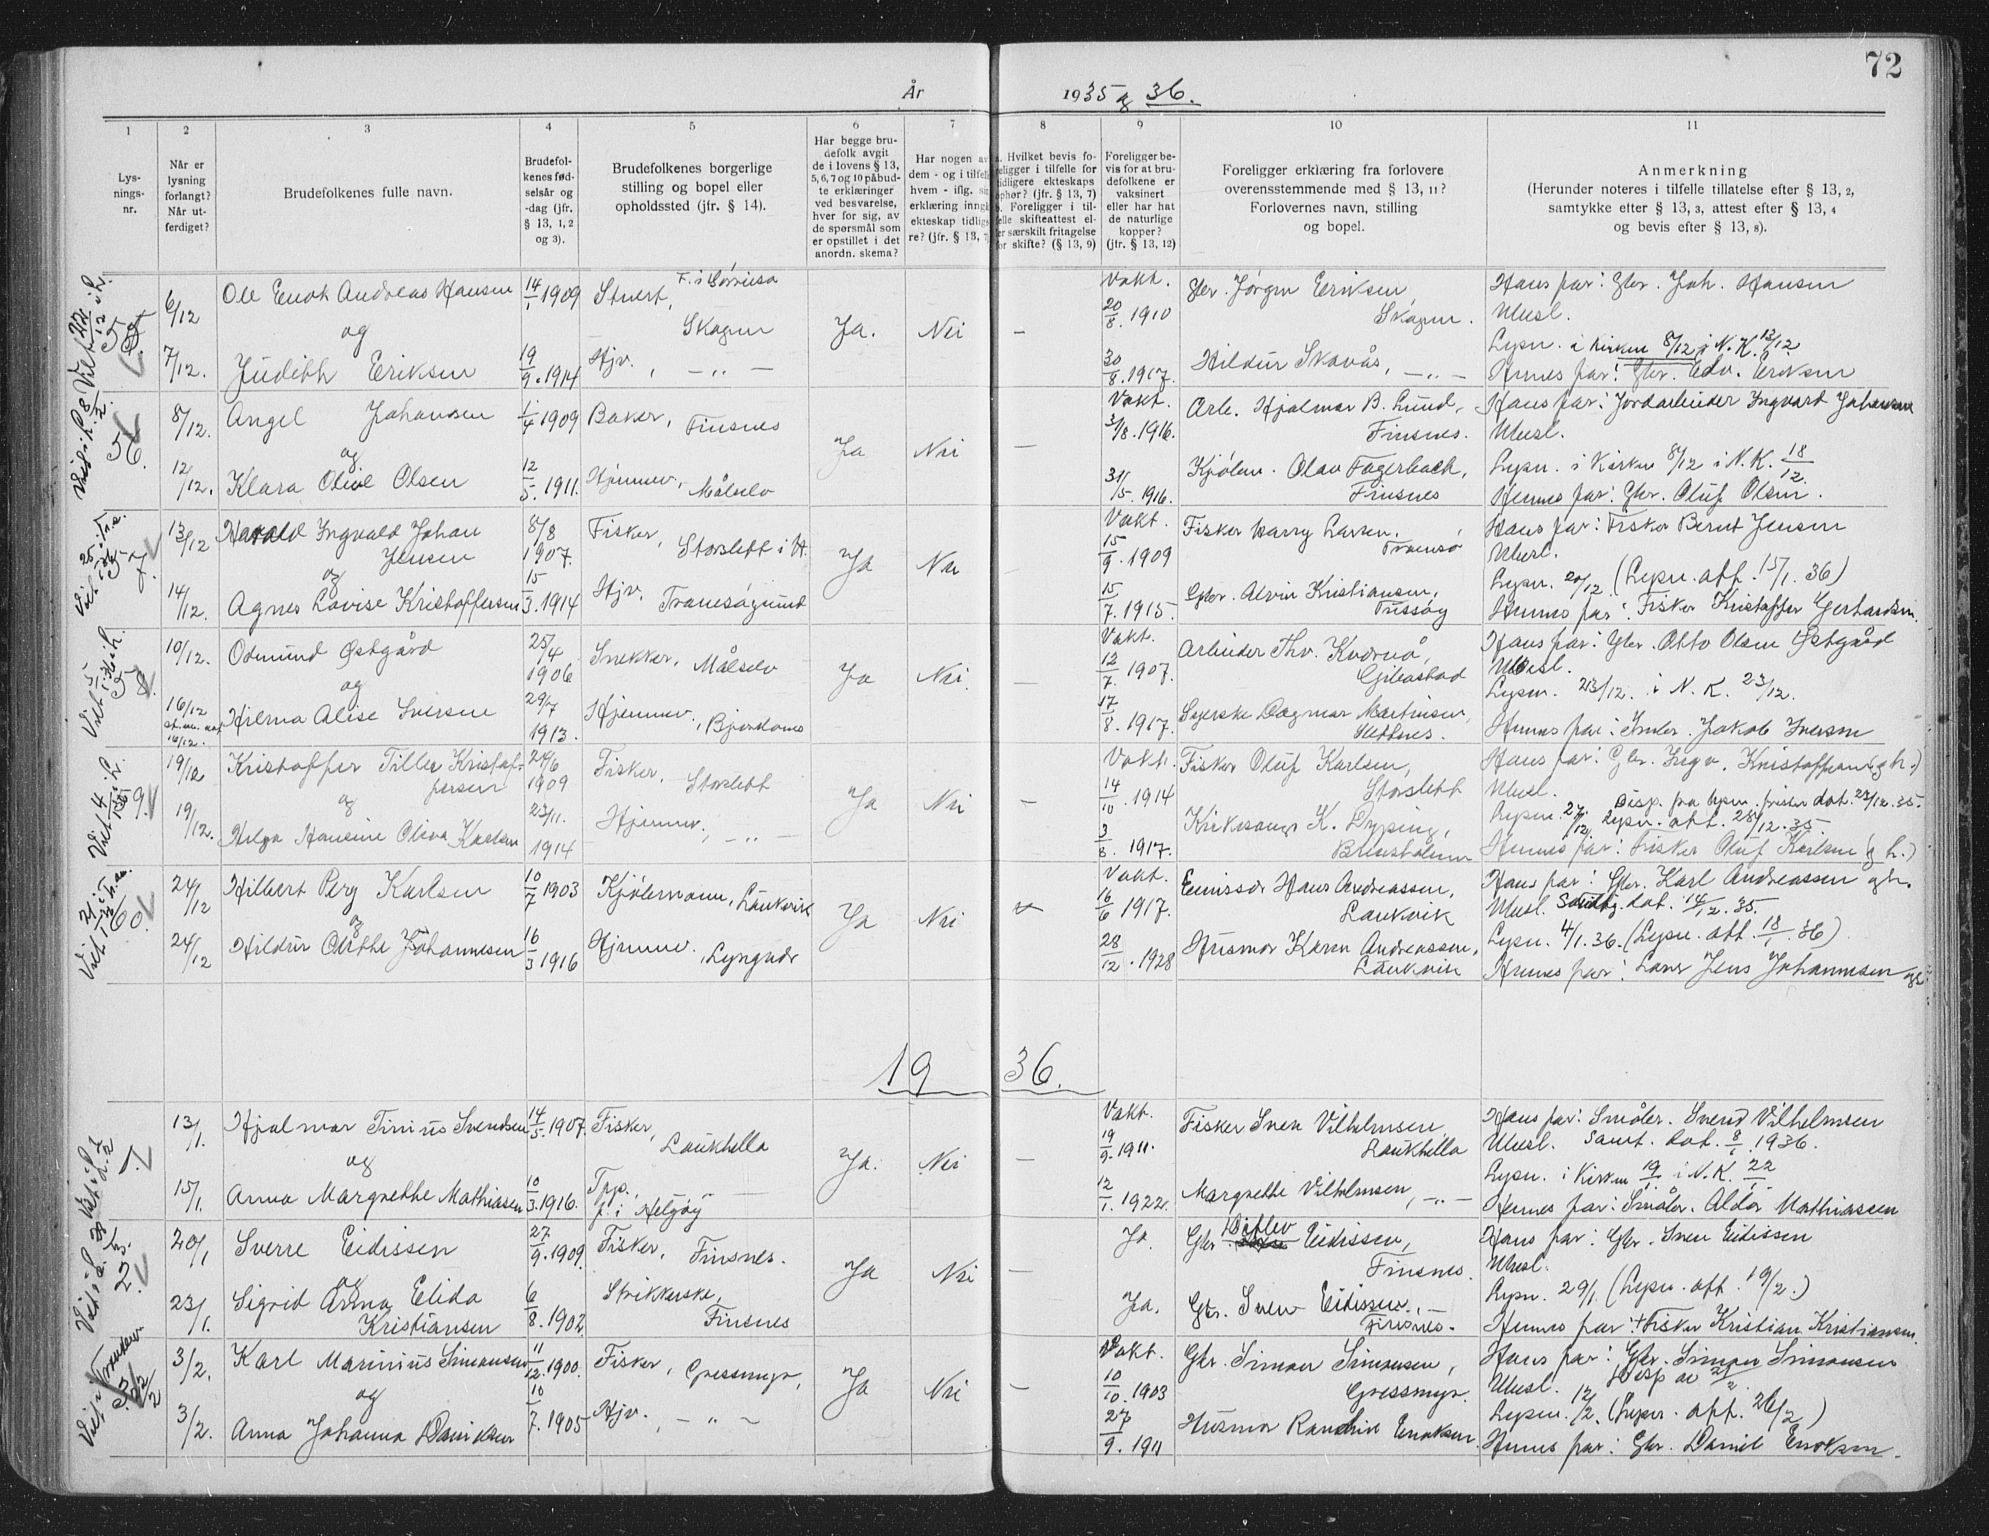 72
År 1935 og 36.
1 2 3 4 5 6 7 8 9 10 11
Lysnings-
nr.
Når er
lysning
forlangt?
Når ut-
ferdiget?
Brudefolkenes fulle navn.
Brudefol-
kenes fød-
selsår og
-dag (jfr.
§ 13, 1, 2
og 3).
Brudefolkenes borgerlige
stilling og bopel eller
opholdssted (jfr. § 14).
Har begge bru-
defolk avgit
de i lovens § 13,
5, 6, 7 og 10 påbud-
te erklæringer
ved besvarelse,
hver for sig, av
de spørsmål som
er opstillet i det
anordn. skema?
Har nogen av
dem - og i tilfelle
hvem - iflg. sin
erklæring inngått
ekteskap tidlige-
re? (jfr. § 13, 7)
a. Hvilket bevis fo-
religger i tilfelle for
tidligere ekteskaps
ophør? (jfr. § 13, 7)
b. Foreligger i til-
felle skifteattest el-
ler særskilt fritagelse
for skifte? (§ 13, 9)
Foreligger be-
vis for at bru-
defolkene er
vaksinert
eller har hat
de naturlige
kopper?
(jfr. § 13, 12)
Foreligger erklæring fra forlovere
overensstemmende med § 13, 11?
Forlovernes navn, stilling
og bopel.
Anmerkning
(Herunder noteres i tilfelle tillatelse efter § 13, 2,
samtykke efter § 13, 3, attest efter § 13, 4
og bevis efter § 13, 8).
55.
6/12
7/12.
Ole Enok Andreas Hansen
og
Judith Eriksen
14/1 1909
19/9. 1914
Stuert,
Skogen
Hjv., —„—
Ja. Nei —
Vakt.
20/8. 1910
30/8. 1917.
Gbr. Jørgen Eriksen,
Skogen.
Hildur Skavås, —„—
Hans far: Gbr. Joh. Hansen
Uuesl.
Lysn. i kirken 8/12 i N.K. 12/12
Hennes far: Gbr. Edv. Eriksen
56.
8/12.
12/12.
Angel Johansen
og
Klara Olive Olsen
1/4 1909
12/5. 1911.
Baker, Finsnes
Hjemmev, Målselv
Ja Nei —
Vakt.
3/8. 1916.
31/5. 1916.
Arb. Hjalmar B. Lund,
Finsnes.
Kjølem. Olav Fagerbach,
Finsnes
Hans far: Jordarbeider Ingvard Johansen
Uuesl.
Lysn. i Kirken 8/12 i N.K. 18/12.
Hennes far: Gbr. Oluf Olsen.
57.
13/12
14/12.
Harald Ingvald Johan
Jensen
og
Agnes Lovise Kristoffersen
8/8
1907.
15/3. 1914
Fisker, Storslett i H.
Hjv. Tranesøgrund
Ja Nei
Vakt.
15/9 1909
15/7. 1915.
Fisker Harry Larsen,
Tromsø
Gbr. Alvin Kristiansen,
Tussøy
Hans far: Fisker Bernt Jensen
Uuesl.
Lysn. 20/12. (Lysn. att. 15/1. 36)
Hennes far: Fisker Kristoffer Gerhardsen.
58.
10/12.
16/12
16/12.
Odmund Østgård
og
Hilma Alise Iversen
25/4
1906
29/7
1913.
Snekker, Målselv
Hjemmev., Bjorelvnes
Ja Nei.
Vakt.
12/7. 1907.
17/8. 1917.
Arbeider Thv. Kvernø,
Gibostad
Syerske Dagmar Martinsen,
Hans far: Gbr. Otto Olsen Østgård
Uuesl.
Lysn. 23/12. i N. K. 23/12.
Hennes far: Småbr. Jakob Iversen
59.
19/12
19/12.
Kristoffer Tiller Kristof-
fersen
og
Helga Hansine Oliva Karlsen
24/6
1909
23/11.
1914
Fisker, Storslett
Hjemmev., —„—
Ja Nei —
Vakt.
14/10. 1914
3/8. 1917.
Fisker Oluf Karlsen,
Storslett
Kirkesanger K. Dyping,
Brensholmen
Hans far: Gbr. Ingv. Kristoffersen g h.)
Uuesl. Disp. fra lysn. frister dat. 23/12. 35.
Lysn. 27/12. Lysn. att. 28/12. 35.
Hennes far: Fisker Oluf Karlsen (g h.)
60.
24/12
24/12
Hilbert Perg Karlsen
og
Hildur Orthe Johannesen
10/7 1903
16/3 1916
Kjølemann, Laukvik
Hjemmev., Lyngnes
Ja Nei
Vakt.
16/6 1917.
28/12. 1928
Emissær Hans Andreassen,
Laukvik
Husmor Karen Andreassen,
Laukvik
Hans far: Gbr. Karl Andreassen gh.
Uuesl. Samtyk. dat. 14/12. 35.
Lysn. 4/1. 36. (Lysn. att. 18/1. 36)
Hennes far: Lærer Jens Johannesen gh
1936.
1.
13/1.
15/1.
Hjalmar Tinius Svendsen
og
Anna Margrethe Mathiasen
14/5. 1907.
10/3. 1916.
Fisker,
Laukhella
Tpp.,
f. i Helgøy
Ja. Nei —
Vakt.
19/9. 1911.
12/1. 1922.
Fisker Sven Vilhelmsen,
Laukhella
Margrethe Vilhelmsen, —„—
Hans far: Småbr. Svend Vilhelmsen
Uuesl. Samt. dat. 8/1. 1936.
Lysn. i Kirken 19/1. i N.K. 22/1.
Hennes far: Småbr. Aldor Mathiassen
2.
20/1
23/1.
Sverre Eidissen
og
Sigrid Anna Elida
Kristiansen
27/9. 1909.
6/8. 1902
Fisker, Finsnes.
Strikkerske,
Finsnes
Ja Nei —
Ja.
Ja.
Gbr. Ditlev Eidissen,
Finsnes.
Gbr. Sven Eidissen,
Finsnes.
Hans far: Gbr. Sven Eidissen
Uuesl.
Lysn. 29/1. (Lysn. att. 19/2.)
Hennes far: +Fisker Kristian Kristiansen.
3.
3/2.
3/2.
Karl Marinius Simonsen
og
Anna Johanna Danielsen
11/12. 1900.
10/7. 1905
Fisker, Gressmyr,
Hjv. —„—
Ja Nei —
Vakt.
10/10. 1903
27/9. 1911
Gbr. Simon Simonsen,
Gressmyr.
Husmor Randine Enoksen
Hans far: Gbr. Simon Simonsen
Uuesl.
Lysn. 12/2. (Lysn. att. 26/2)
Hennes far: Gbr. Daniel Enoksen.